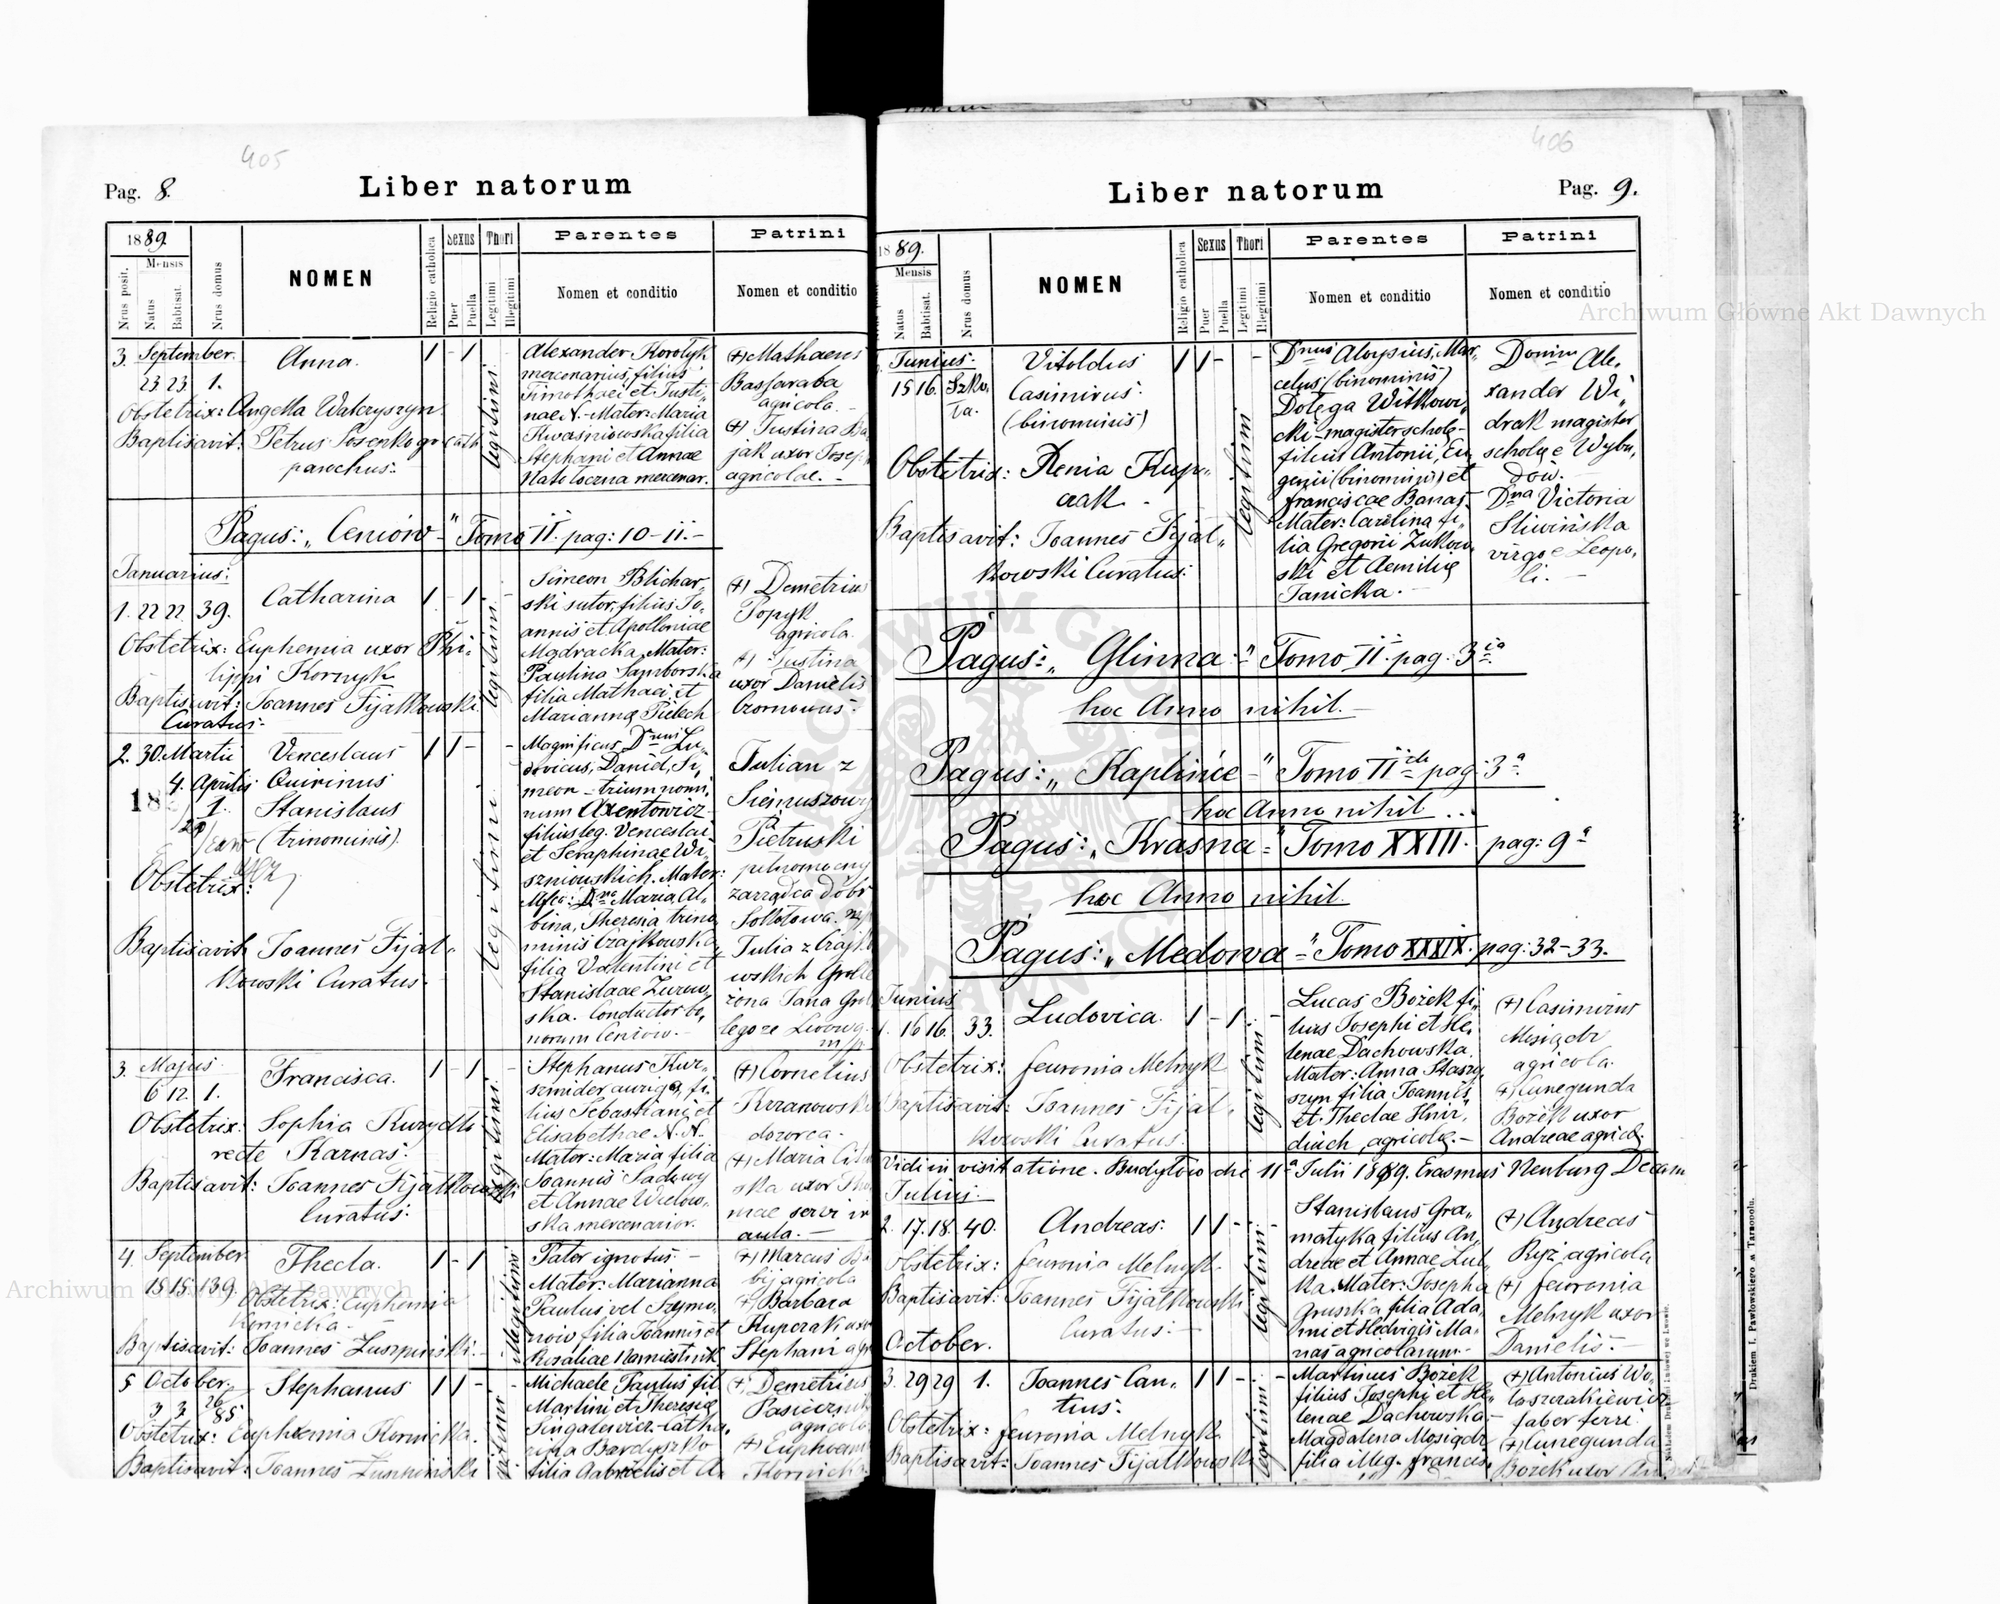 405
Pag. 8.
Liber natorum
1889.
Mensis
Nrus posit.
Natus
Babtisat.
Nrus domus
NOMEN
Religio catholica
Sexus
Puer
Puella
Thori
Legitimi
Illegitimi
Parentes
Nomen et conditio
Patrini
Nomen et conditio
3. September.
23 23 1.
Anna.
1 - 1
legitimi
Obstetrix: Angella Walczyszyn
Baptisavit: Petrus
parochus:
Alexander Korolyk
mercenarius, filius
Timothaei et Justi-
nae N. - Mater: Maria
Kwaśniowska filia
Stephani et Annae
mercenar.
(+) Mathaeus
Bassaraba
agricola. -
(+) Justina
jak uxor Joseph
agricolae. -
Pagus: „Ceniów" Tomo II. pag: 10-11.-
Januarius:
1. 22 22. 39.
Catharina
1 - 1 -
legitimi.
Obstetrix: Euphemia uxor Phi-
lippi Kornyk
Baptisavit: Joannes Fijałkowski
Curatus:
Simeon Blichar-
ski sutor, filius Jo-
annis et Apolloniae
Mądracka, Mater:
Paulina Samborska
filia Mathaei et
Mariannę Pielech
(+) Demetrius
Popyk
agricola.
(+) Justina
uxor Danielis
2. 30. Martii
4. Aprilis
1.
Venceslaus
Quirinus
Stanislaus
(trinominis).
1 1 -
legitimi
Obstetrix:
Baptisavit Joannes Fijał-
kowski Curatus.
Magnificus Dnus Lu-
dovicus, Daniel, Si-
meon - trium nomi-
num Axentowicz
filius leg. Venceslai
et Seraphinae Wi-
szniowskich. Mater:
Dna Maria Al-
bina, Theresia trino
minis Czajkowska,
filia Valentini et
Stanislaae Zurow-
ska. Conductor bo-
norum Ceniow. -
Julian z
Siemuszowy
Pietruski
pełnomocny
zarządca dóbr
Sołotowa.
Julia z Czajko
wskich
żona Jana
ze Lwowa
3. Majus.
6 12. 1.
Francisca.
1 - 1 -
legitimi
Obstetrix: Sophia
recte Karnas.
Baptisavit: Joannes Fijałkowski
Curatus:
Stephanus Kur-
szmider auriga, fi-
lius Sebastiani et
Elisabethae N. N.
Mater: Maria filia
Joannis Sadowy
et Annae Wielow-
ska mercenarior.
(+) Cornelius
dozorca.
(+) Maria
ska uxor Tho
mae servi in
aula. -
4. September
15 15. 139.
Thecla.
1 - 1
illegitimi
Obstetrix: Euphemia
Kornicka. -
Baptisavit: Joannes Łuszpiński. -
Pater ignotus. -
Mater: Marianna
Paulus vel Szymo-
now filia Joannis et
Rosaliae Namiestnik
(+) Marcus
agricola
(+) Barbara
Kupczak uxor
Stephani agr
5 October.
3 3 85
Stephanus
1 1 - -
Obstetrix: Euphemia Kornicka.
Baptisavit: Joannes Łuszpiński
Michaele Paulus fil.
Martini et Theresiae
Singalewicz. Catha-
rina Bardyszko
filia Gabrielis et A.
(+) Demetrius
Pasiecznik
agricola
(+) Euphemia
Kornicka
406
Liber natorum
Pag. 9.
1889.
Mensis
Natus
Babtisat.
Nrus domus
NOMEN
Religio catholica
Sexus
Puer
Puella
Thori
Legitimi
Illegitimi
Parentes
Nomen et conditio
Patrini
Nomen et conditio
Junius:
15 16. Szko-
ła.
Vitoldus
Casimirus.
(binominis)
1 1 -
legitimi
Obstetrix: Xenia Kup-
czak -
Baptisavit: Joannes Fijał-
kowski Curatus:
Dnus Aloysius, Mar-
celus (binominis)
Dołęga Witkow-
cki - magister schole-
filius Antonii, Eu-
genii (binominis) et
Franciscae Banaś.
Mater: Carolina fi-
lia Gregorii Zukow-
ski et Aemilię
Janicka. -
Domin Ale-
xander Wi-
drak magister
scholę e Wybu-
dów.
Dna Victoria
Sliwińska
virgo e Leopo-
li. -
Pagus: „Glinna" Tomo II. pag: 3ia
hoc Anno nihil. -
Pagus: „Kaplińce" Tomo II pag: 3a.
hoc Anno nihil ...
Pagus: „Krasna" Tomo XXIII. pag: 9a
hoc Anno nihil.
Pagus: „Medowa" Tomo XXXIX. pag: 32-33.
Junius
1. 16 16. 33.
Ludovica.
1 - 1 -
legitimi
Obstetrix: Feuronia Melnyk
Baptisavit: Joannes Fijał-
kowski Curatus.
Lucas Bożek fi-
lius Josephi et He-
lenae Dachowska.
Mater: Anna Staszy-
szyn filia Joannis
et Theclae Hnir-
duch, agricolę. -
(+) Casimirus
Mosiądz
agricola.
(+) Cunegunda
Bożek uxor
Andreae agricolę.
Vidi in visitatione. Budyłów die 11a Julii 1889. Erasmus Neuburg Decan
Julius.
2. 17. 18. 40.
Andreas.
1 1 - -
legitimi
Obstetrix: Feuronia Melnyk.
Baptisavit: Joannes Fijałkowski
Curatus: -
Stanislaus Gra-
matyka filius An-
dreae et Annae Lul-
ka. Mater: Josepha
Gruszka filia Ada-
mi et Hedvigis Ma-
naś agricolarum. -
(+) Andreas
Ryż agricola,
(+) Feuronia
Melnyk uxor
Danielis. -
October.
3. 29 29 1.
Joannes Can-
tius.
1 1 - -
legitimi
Obstetrix: Feuronia Melnyk
Baptisavit: Joannes Fijałkowski
Martinus Bożek
filius Josephi et He-
lenae Dachowska. -
Magdalena Mosiądz
filia illeg. Francis.
(+) Antonius Wo-
łoszczakiewicz
faber ferri.
(+) Cunegunda
Bożek uxor
Drukiem I. Pawłowskiego w Tarnopolu.
Archiwum Główne Akt Dawnych
Archiwum Główne Akt Dawnych
ARCHIWUM GŁÓWNE AKT DAWNYCH